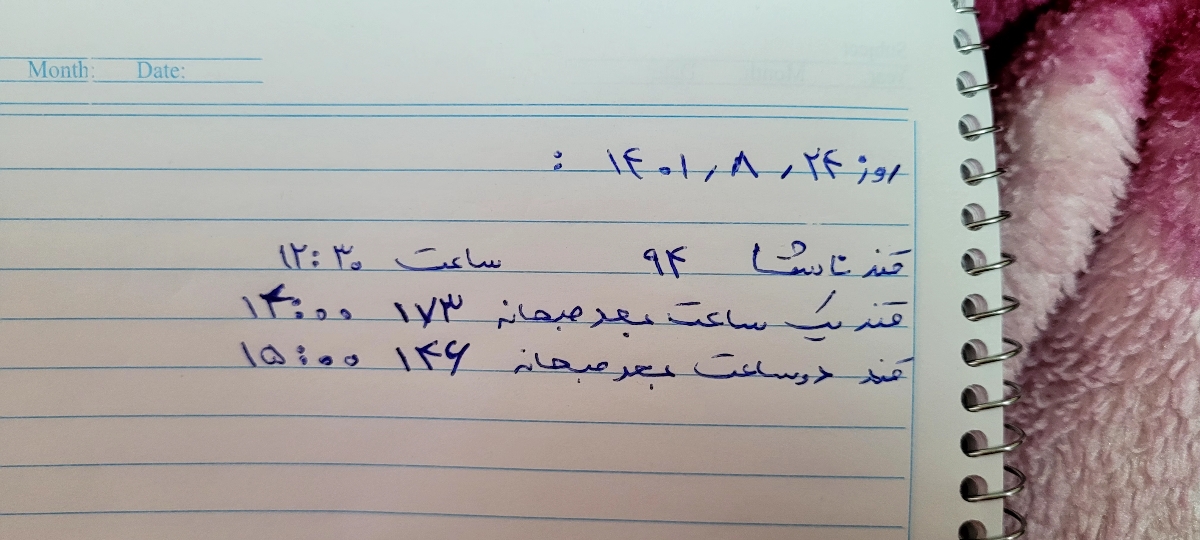 Month: Date:
روز ۲۴ ، ۸ ، ۱۴۰۱ :
قند ناشتا ۹۴ ساعت ۱۲:۳۰
قند یک ساعت بعد صبحانه ۱۷۳ ۱۴:۰۰
قند دو ساعت بعد صبحانه ۱۴۶ ۱۵:۰۰